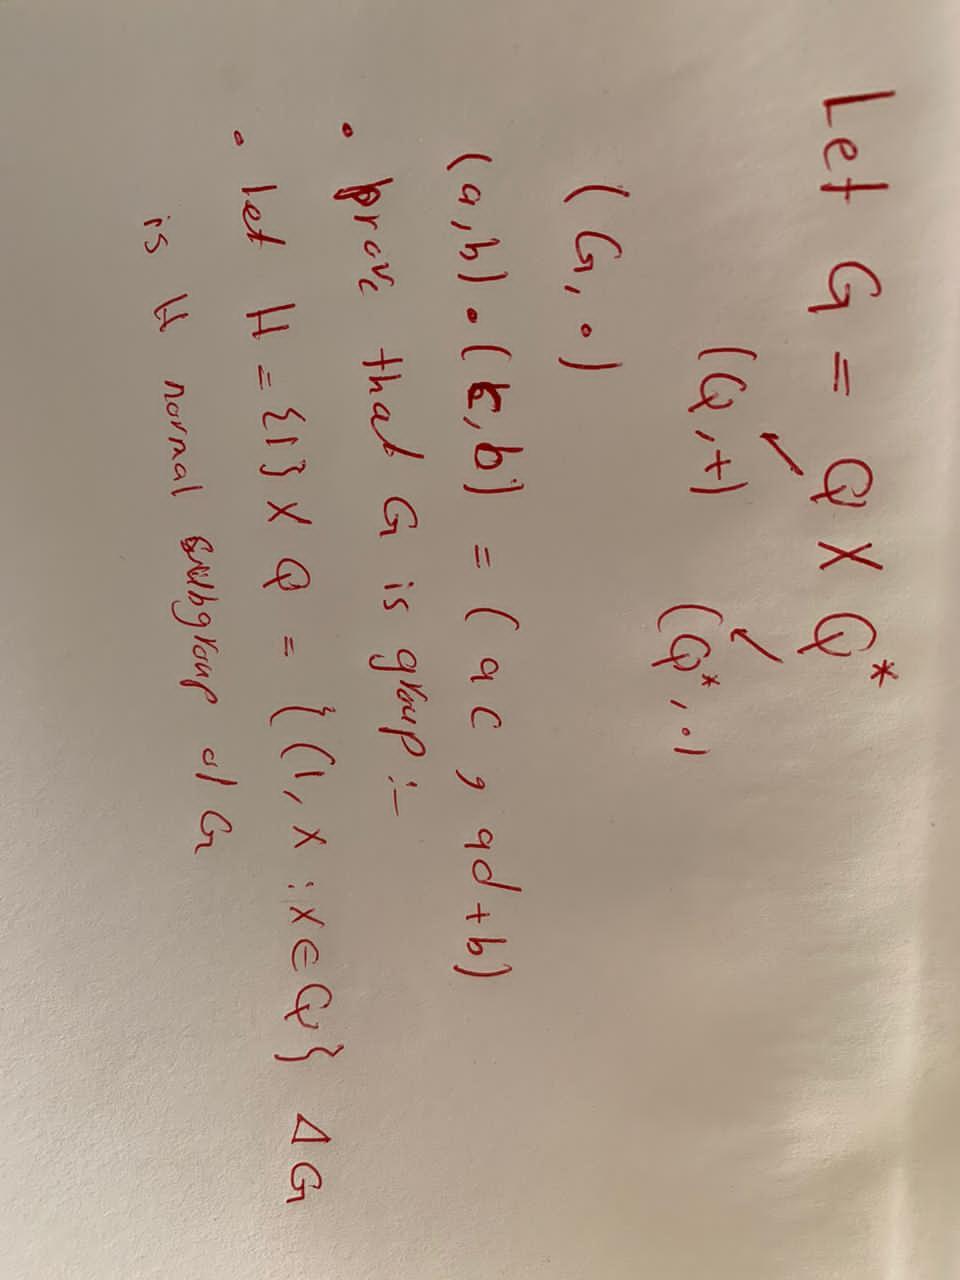 Let G = Q X Q*
(Q,+) (Q*, .)
(G, .)
(a,b) . (c,b) = (ac, ad+b)
• prove that G is group :-
• let H = {1} X Q = {(1, x : x ∈ Q} Δ G
is H normal subgroup of G